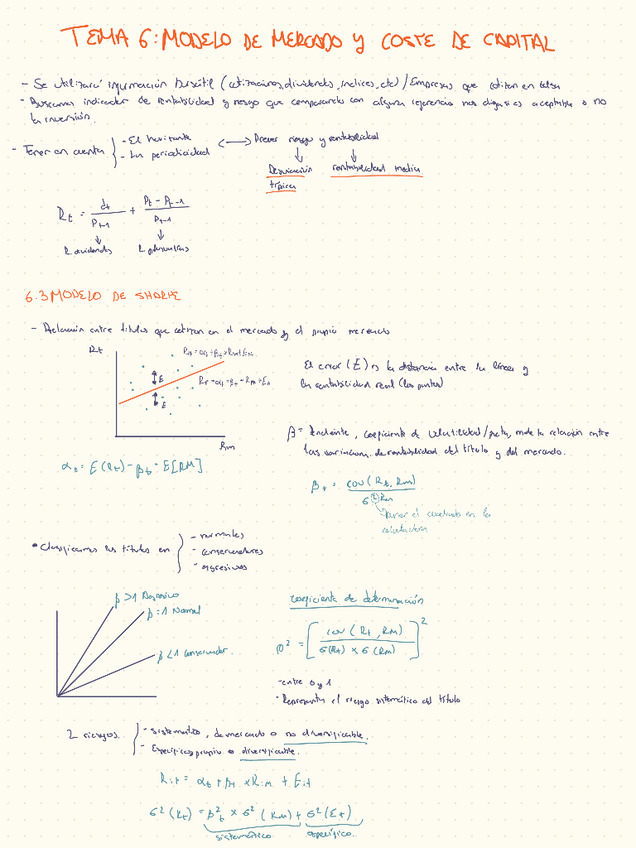 TEMA 6: MODELO DE MERCADO y COSTE DE CAPITAL
- Se utilizará información bursátil (cotizaciones, dividendos, índices, etc) / Empresas que cotizan en bolsa
- Buscamos indicador de rentabilidad y riesgo que comparando con alguna referencia nos diga si es aceptable o no
la inversión.
- Tener en cuenta { - El horizonte
- La periodicidad
<-> Prever riesgo y rentabilidad
↓ ↓
Desviación típica
rentabilidad media
Rt = dt / Pt-1 + Pt - Pt-1 / Pt-1
↓ ↓
R dividendos R plusvalías
6.3 MODELO DE SHARPE
- Relación entre títulos que cotizan en el mercado y el propio mercado
Rt
E
E
Rm
El error (E) es la distancia entre la línea y
la rentabilidad real (los puntos)
β = Pendiente, coeficiente de volatilidad/beta, mide la relación entre
las variaciones de rentabilidad del título y del mercado.
= E(Rt) - βt · E[RM]
βt = cov(Rt, Rm) / σ² Rm
Poner el cuadrado en la
calculadora
• Clasificamos los títulos en { - normales
- conservadores
- agresivos
β > 1 Agresivo
β = 1 Normal
β < 1 Conservador
coeficiente de determinación
ρ² = [ cov(Rt, RM) / σ(Rt) × σ(RM) ]²
- entre 0 y 1
- Representa el riesgo sistemático del título
2 riesgos { - sistemático, de mercado o no diversificable.
- Específico, propio o diversificable.
Rit = αt + βt × Rim + Eit
σ²(Rt) = βt² × σ²(RM) + σ²(Et)
sistemático específico.